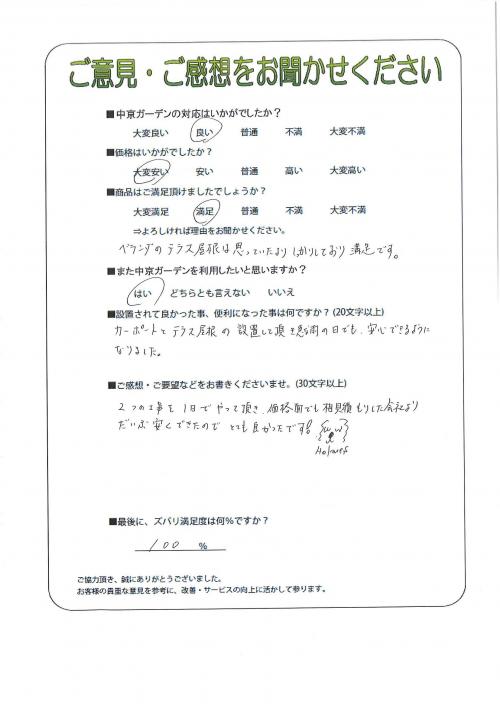 ご意見・ご感想をお聞かせください
■中京ガーデンの対応はいかがでしたか？
大変良い 良い 普通 不満 大変不満
■価格はいかがでしたか？
大変安い 安い 普通 高い 大変高い
■商品はご満足頂けましたでしょうか？
大変満足 満足 普通 不満 大変不満
⇒よろしければ理由をお聞かせください。
ベランダのテラス屋根は思っていたよりしっかりしており満足です。
■また中京ガーデンを利用したいと思いますか？
はい どちらとも言えない いいえ
■設置されて良かった事、便利になった事は何ですか？(20文字以上)
カーポートとテラス屋根の設置して頂き の日でも、安心できるように
なりました。
■ご感想・ご要望などをお書きくださいませ。(30文字以上)
2つの工事を1日でやって頂き、価格面でも相見積もりした会社より
だいぶ安くできたのでとても良かったです
■最後に、ズバリ満足度は何％ですか？
100 ％
ご協力頂き、誠にありがとうございました。
お客様の貴重な意見を参考に、改善・サービスの向上に活かして参ります。